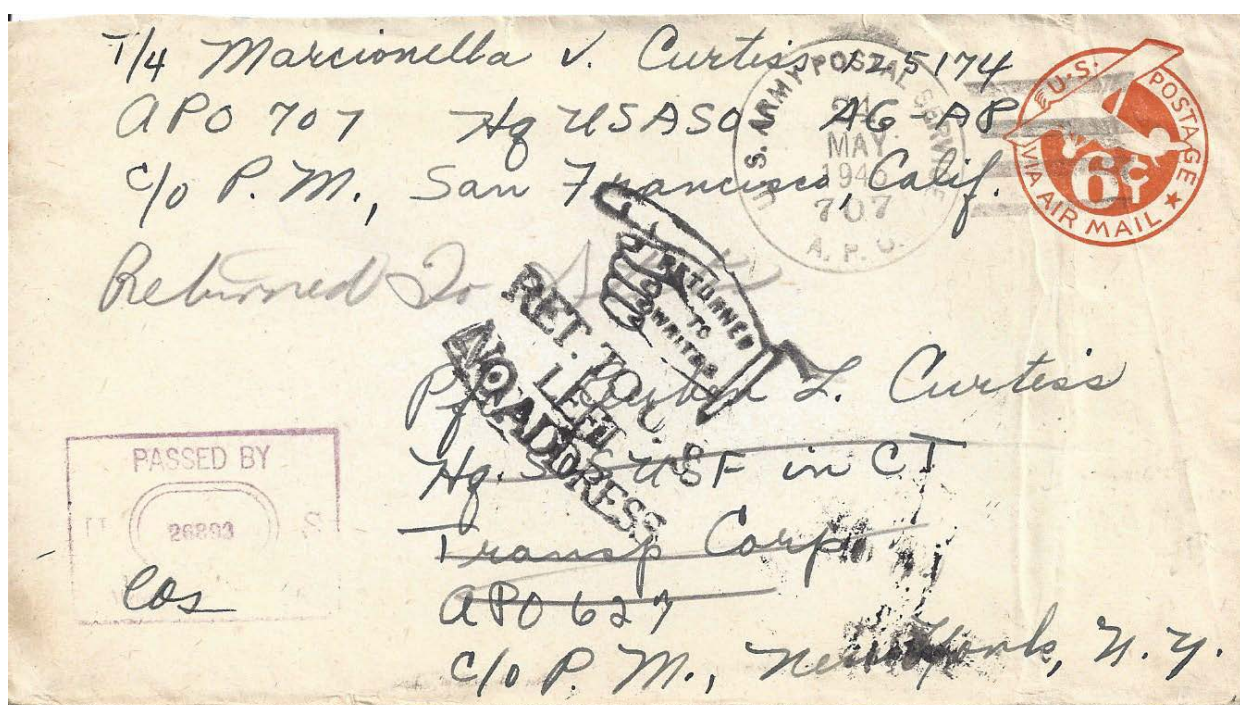 T/4 Marcionella V. Curtiss, 125174
APO 707 Hq USASO AG-AP
c/o P. M., San Francisco, Calif.
U. S. ARMY POSTAL SERVICE
24
MAY
707
A. P. O.
U.S. POSTAGE
6¢
VIA AIR MAIL
Returned To
RETURNED
TO
WRITER
RET. TO U. S.
LEFT
NO ADDRESS
L. Curtiss
Hq. USF in CT
Transp Corp.
APO 627
c/o P. M., New York, N. Y.
PASSED BY
U S
26893